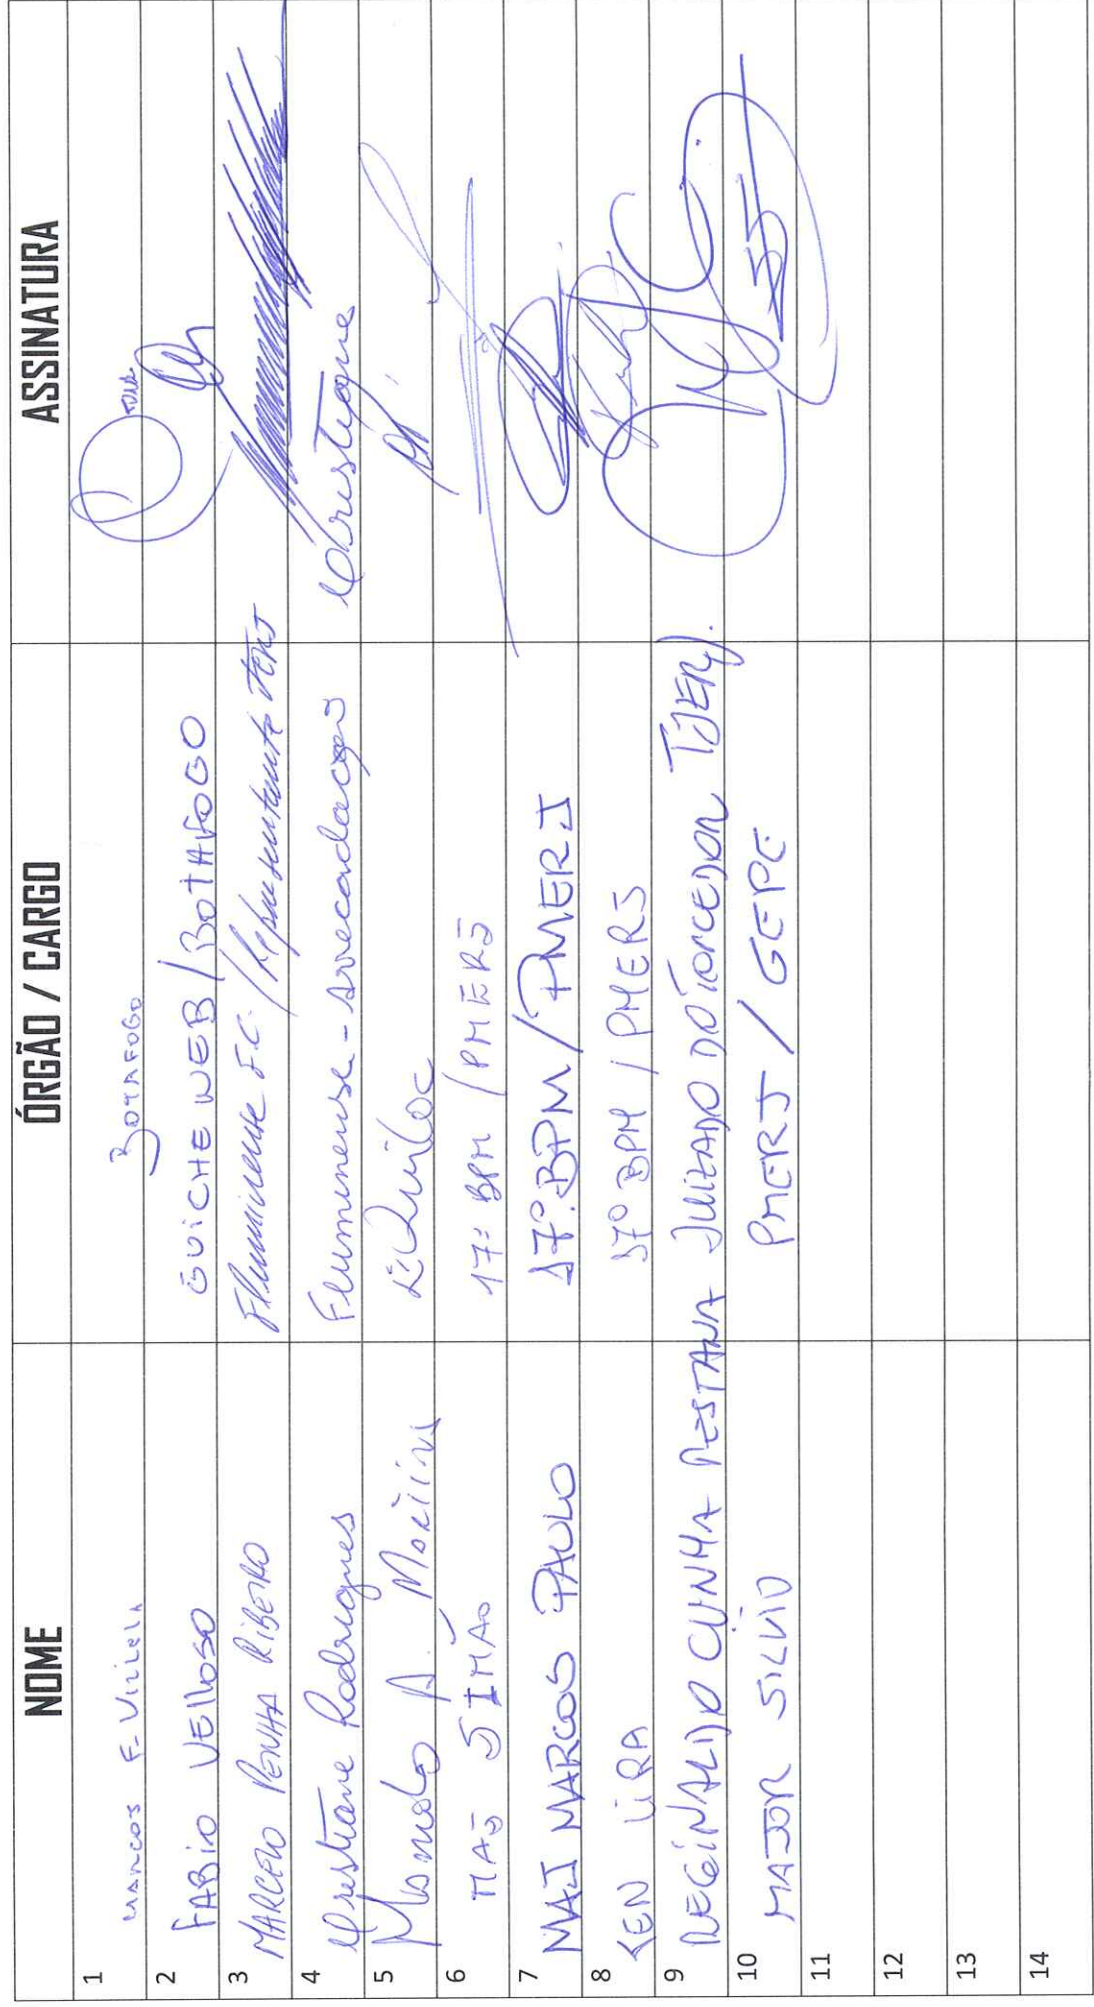 NOME ÓRGÃO / CARGO ASSINATURA
1 Marcos F. Vilela BOTAFOGO
2 FABIO VELLOSO GUICHE WEB / BOTAFOGO
3 MARCELO PENHA RIBEIRO Fluminense F.C. / Representante
4 Cristiane Rodrigues Fluminense - Arrecadação Cristiane
5 A. Martins
6 MAJ SIMÃO 17º BPM / PMERJ
7 MAJ MARCOS PAULO 17º BPM / PMERJ
8 LIRA 17º BPM / PMERJ
9 REGINALDO CUNHA PESTANA JUIZADO DO TORCEDOR TJERJ.
10 MAJOR SILVIO PMERJ / GEPE
11
12
13
14